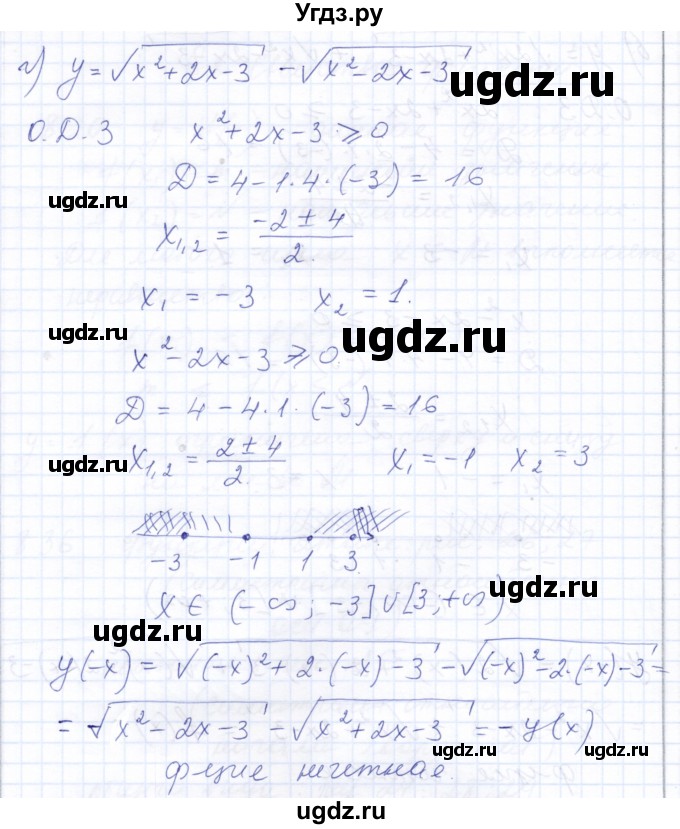 Угдз.ру
г) y = √(x² + 2x - 3) - √(x² - 2x - 3)
ugdz.ru
О.Д.З x² + 2x - 3 ⩾ 0
Д = 4 - 1·4·(-3) = 16
ugdz.ru
x₁,₂ = (-2 ± 4)/2.
x₁ = -3 x₂ = 1.
ugdz.ru
x² - 2x - 3 ⩾ 0
Д = 4 - 4·1·(-3) = 16
ugdz.ru
x₁,₂ = (2 ± 4)/2. x₁ = -1 x₂ = 3
-3 -1 1 3
ugdz.ru
(x ∈ (-∞; -3] ∪ [3; +∞)
ugdz.ru
y(-x) = √((-x)² + 2·(-x) - 3) - √((-x)² - 2·(-x) - 3) =
= √(x² - 2x - 3) - √(x² + 2x - 3) = -y(x)
ugdz.ru
ugdz.ru
ф-ция нечетная.
ugdz.ru